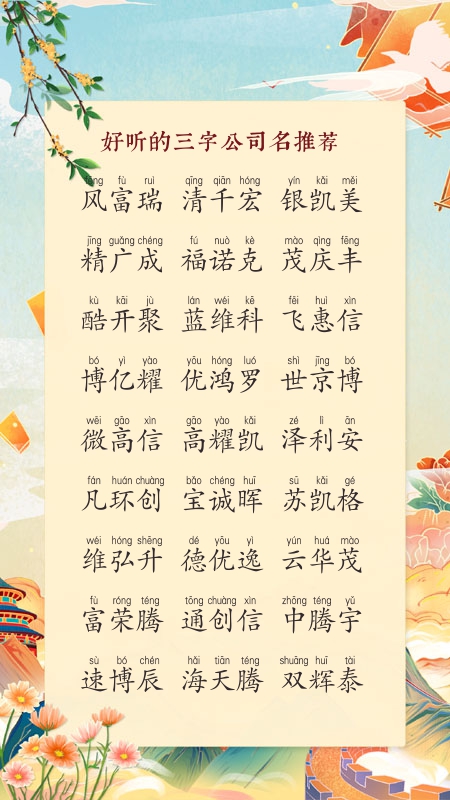 好听的三字公司名推荐
fēng fù ruì qīng qiān hóng yín kǎi měi
风富瑞 清千宏 银凯美
jīng guǎng chéng fú nuò kè mào qìng fēng
精广成 福诺克 茂庆丰
kù kāi jù lán wéi kē fēi huì xìn
酷开聚 蓝维科 飞惠信
bó yì yào yōu hóng luó shì jīng bó
博亿耀 优鸿罗 世京博
wēi gāo xìn gāo yào kǎi zé lì ān
微高信 高耀凯 泽利安
fán huán chuàng bǎo chéng huī sū kǎi gé
凡环创 宝诚晖 苏凯格
wéi hóng shēng dé yōu yì yún huá mào
维弘升 德优逸 云华茂
fù róng téng tōng chuàng xìn zhōng téng yǔ
富荣腾 通创信 中腾宇
sù bó chén hǎi tiān téng shuāng huī tài
速博辰 海天腾 双辉泰